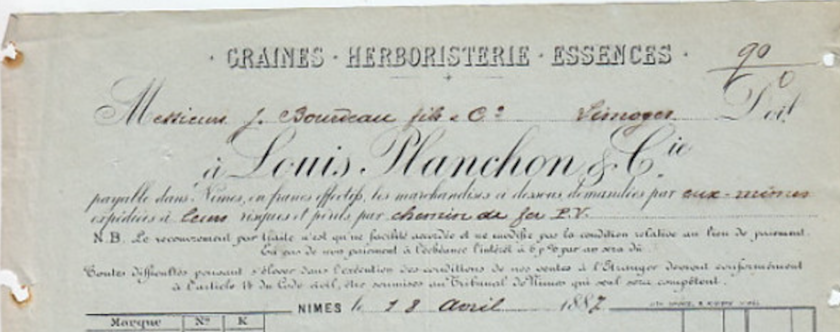 · GRAINES · HERBORISTERIE · ESSENCES ·
90
Messieurs J. Bourdeau fils & Cie Limoges Doit
à Louis Planchon & Cie
payable dans Nîmes, en francs effectifs, les marchandises ci dessous demandées par eux-mêmes
expédiées à leurs risques et périls par chemin de fer P.V.
N.B. Le recouvrement par traite n'est qu'une facilité accordée et ne modifie pas la condition relative au lieu de paiement.
En cas de non paiement à l'échéance l'intérêt à 6 p % par an sera dû.
Toutes difficultés pouvant s'élever dans l'exécution des conditions de nos ventes à l'Etranger devront conformément
à l'article 14 du Code civil, être soumises au Tribunal de Nîmes qui seul sera compétent.
NIMES le 18 Avril 1887
Marque Nos K